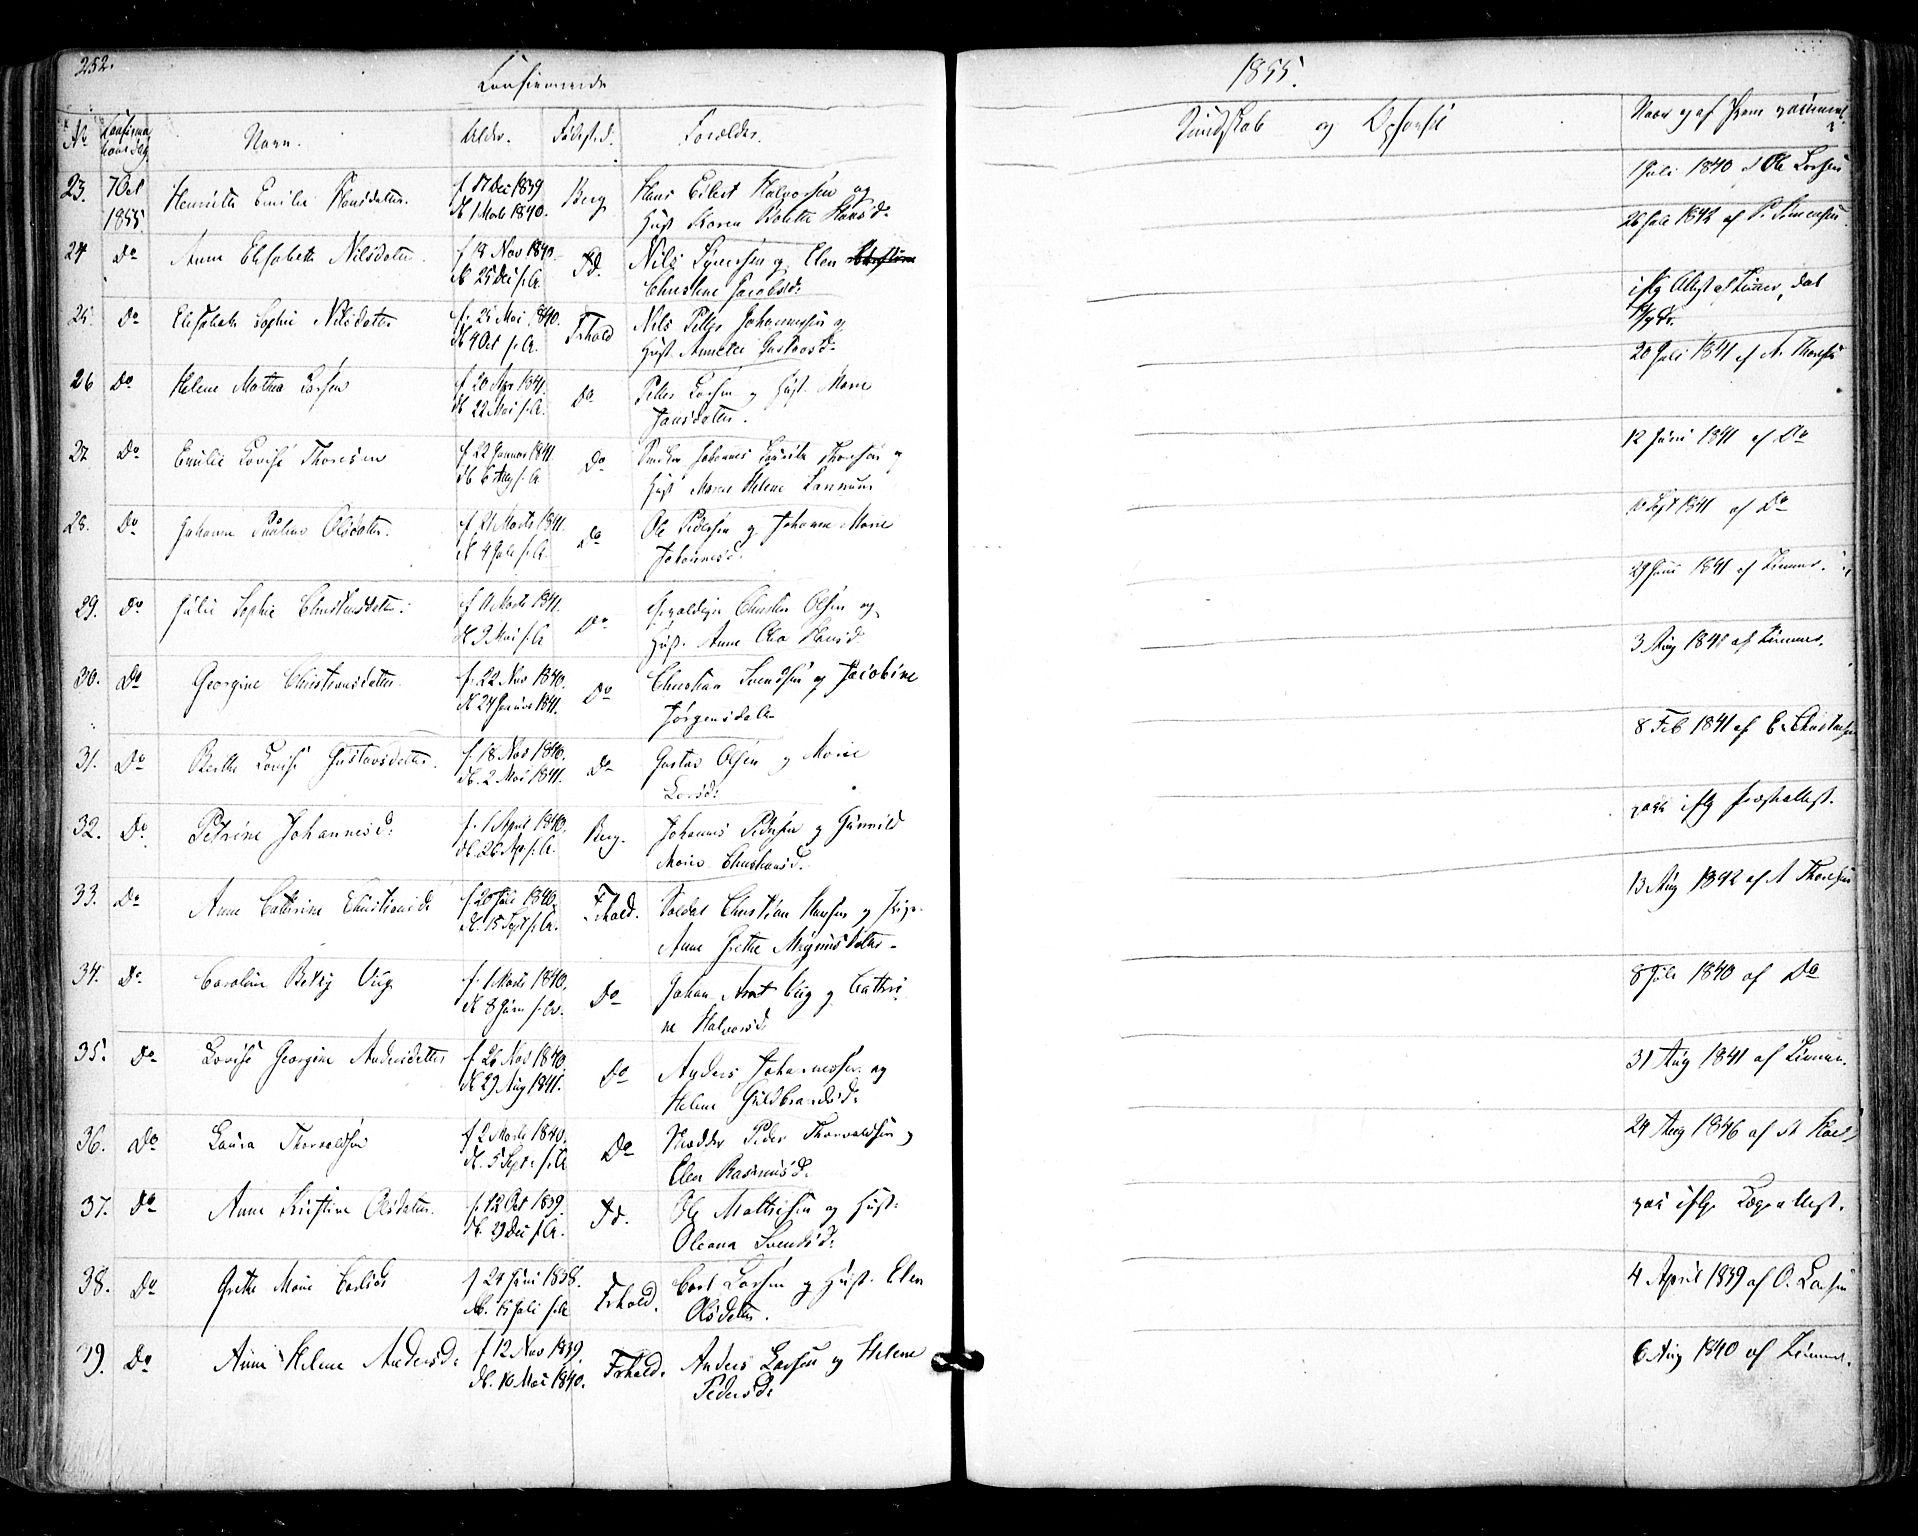 252.
Confirmerede
1855.
No Confirma
tions Dag Navn. Alder. Fødest.d. Forældre.
Kundskab og Opførsel
Naar og af hvem vaccineret
23. 7 Oct
1855. Henriette Emilie Hansdatter. f. 17 Dec 1839
d. 1 Marts 1840. Berg Hans Eilert Halvorsen og
Hust Karen Bolette Hansd:
1 Juli 1840 af Ole Larsen
24 Do Anne Elisabeth Nilsdatter. f 19 Nov 1840.
d. 25 Dec s.A. Id. Nils Syversen og Elen
Christine Jacobsd:
26 Juli 1842 af P. Simensen.
25. Do Elisabeth Sophie Nilsdatter f. 25 Mai 1840.
d. 4 Oct s.A. Frhald Nils Petter Johannessen og
Hust. Annette Gustavsd:
iflg Attest af Limmer, dat
26 Do Helene Mathea Larsen f. 20 Apr 1841.
d. 22 Mai s.A. Do Petter Larsen og Hust. Marie
Hansdatter.
20 Juli 1841 af A. Thoresen
27 Do Emilie Lovise Thoresen f. 22 Januar 1841
d. 6 Aug s.A. Do Snedker Johannes Lauritz Thoresen og
Hust Maren Helene
12 Juni 1841 af Do
28. Do Johanne Pauline Olsdatter. f. 21 Marts 1841.
d. 4 Juli s.A. Do Ole Pedersen og Johanne Marie
Johannesd:
10 Sept 1841 af Do
29. Do Julie Sophie Christensdatter. f. 11 Marts 1841.
d. 9 Mai s.A Do Christen Olsen og
Hust. Anne Olea Hansd
29 Juni 1841 af Limmer.
30. Do Georgine Christiansdatter. f. 22 Nov 1840.
d. 24 Januar 1841. Do Christian Svendsen og Jacobine
Jørgensdatter
3 Aug 1841 af Limmer.
31. Do Berthe Lovise Gustavsdatter. f. 18 Nov 1840.
d. 2 Mai 1841. Do Gustav Olsen og Marie
Larsd:
8 Feb 1841 af E. Christensen
32. Do Petrine Johannesd: f. 1 April 1840.
d. 26 Apr s.A. Berg. Johannes Pedersen og Gunnild
Marie Christiansd.
vacc iflg Præsteattest.
33. Do Anne Cathrine Christiansd: f. 20 Juli 1840.
d. 15 Sept s.A. Frhald. Soldat Christian Hansen og Pige
Anne Grethe Magnusdatter
13 Aug 1842 af A Thoresen
34. Do Caroline Betzy Viig f. 1 Marts 1840.
d. 8 Juni s.A. Do Johan Arnt Viig og Cathri
ne Halvorsd
8 Juli 1840 af Do
35. Do Lovise Georgine Andersdatter f. 26 Nov 1840.
d. 29 Aug 1841. Do Anders Johannessen og
Helene Guldbrandsd:
31 Aug 1841 af Limmer.
36. Do Laura Thorvaldsen f. 2 Marts 1840.
d. 5 Sept. s.A Do Peder Thorvaldsen og
Elen Rasmusd:
24 Aug 1846 af
37. Do Anne Kristine Olsdatter. f. 12 Oct 1839.
d. 29 Dec s.A. Id. Ole Mathisen og Hust:
Oleana Svendsd:
vac iflg. Lægeattest.
38. Do Grethe Marie Carlsd: f 24 Juni 1838.
d. 15 Juli s.A Frhald. Carl Larsen og Hust. Elen
Olsdatter.
4 April 1839 af O. Larsen
39. Do Anne Helene Andersd: f 12 Nov 1839.
d. 10 Mai 1840. Frhald. Anders Larsen og Helene
Pedersd:
6 Aug 1840 af Limmer.